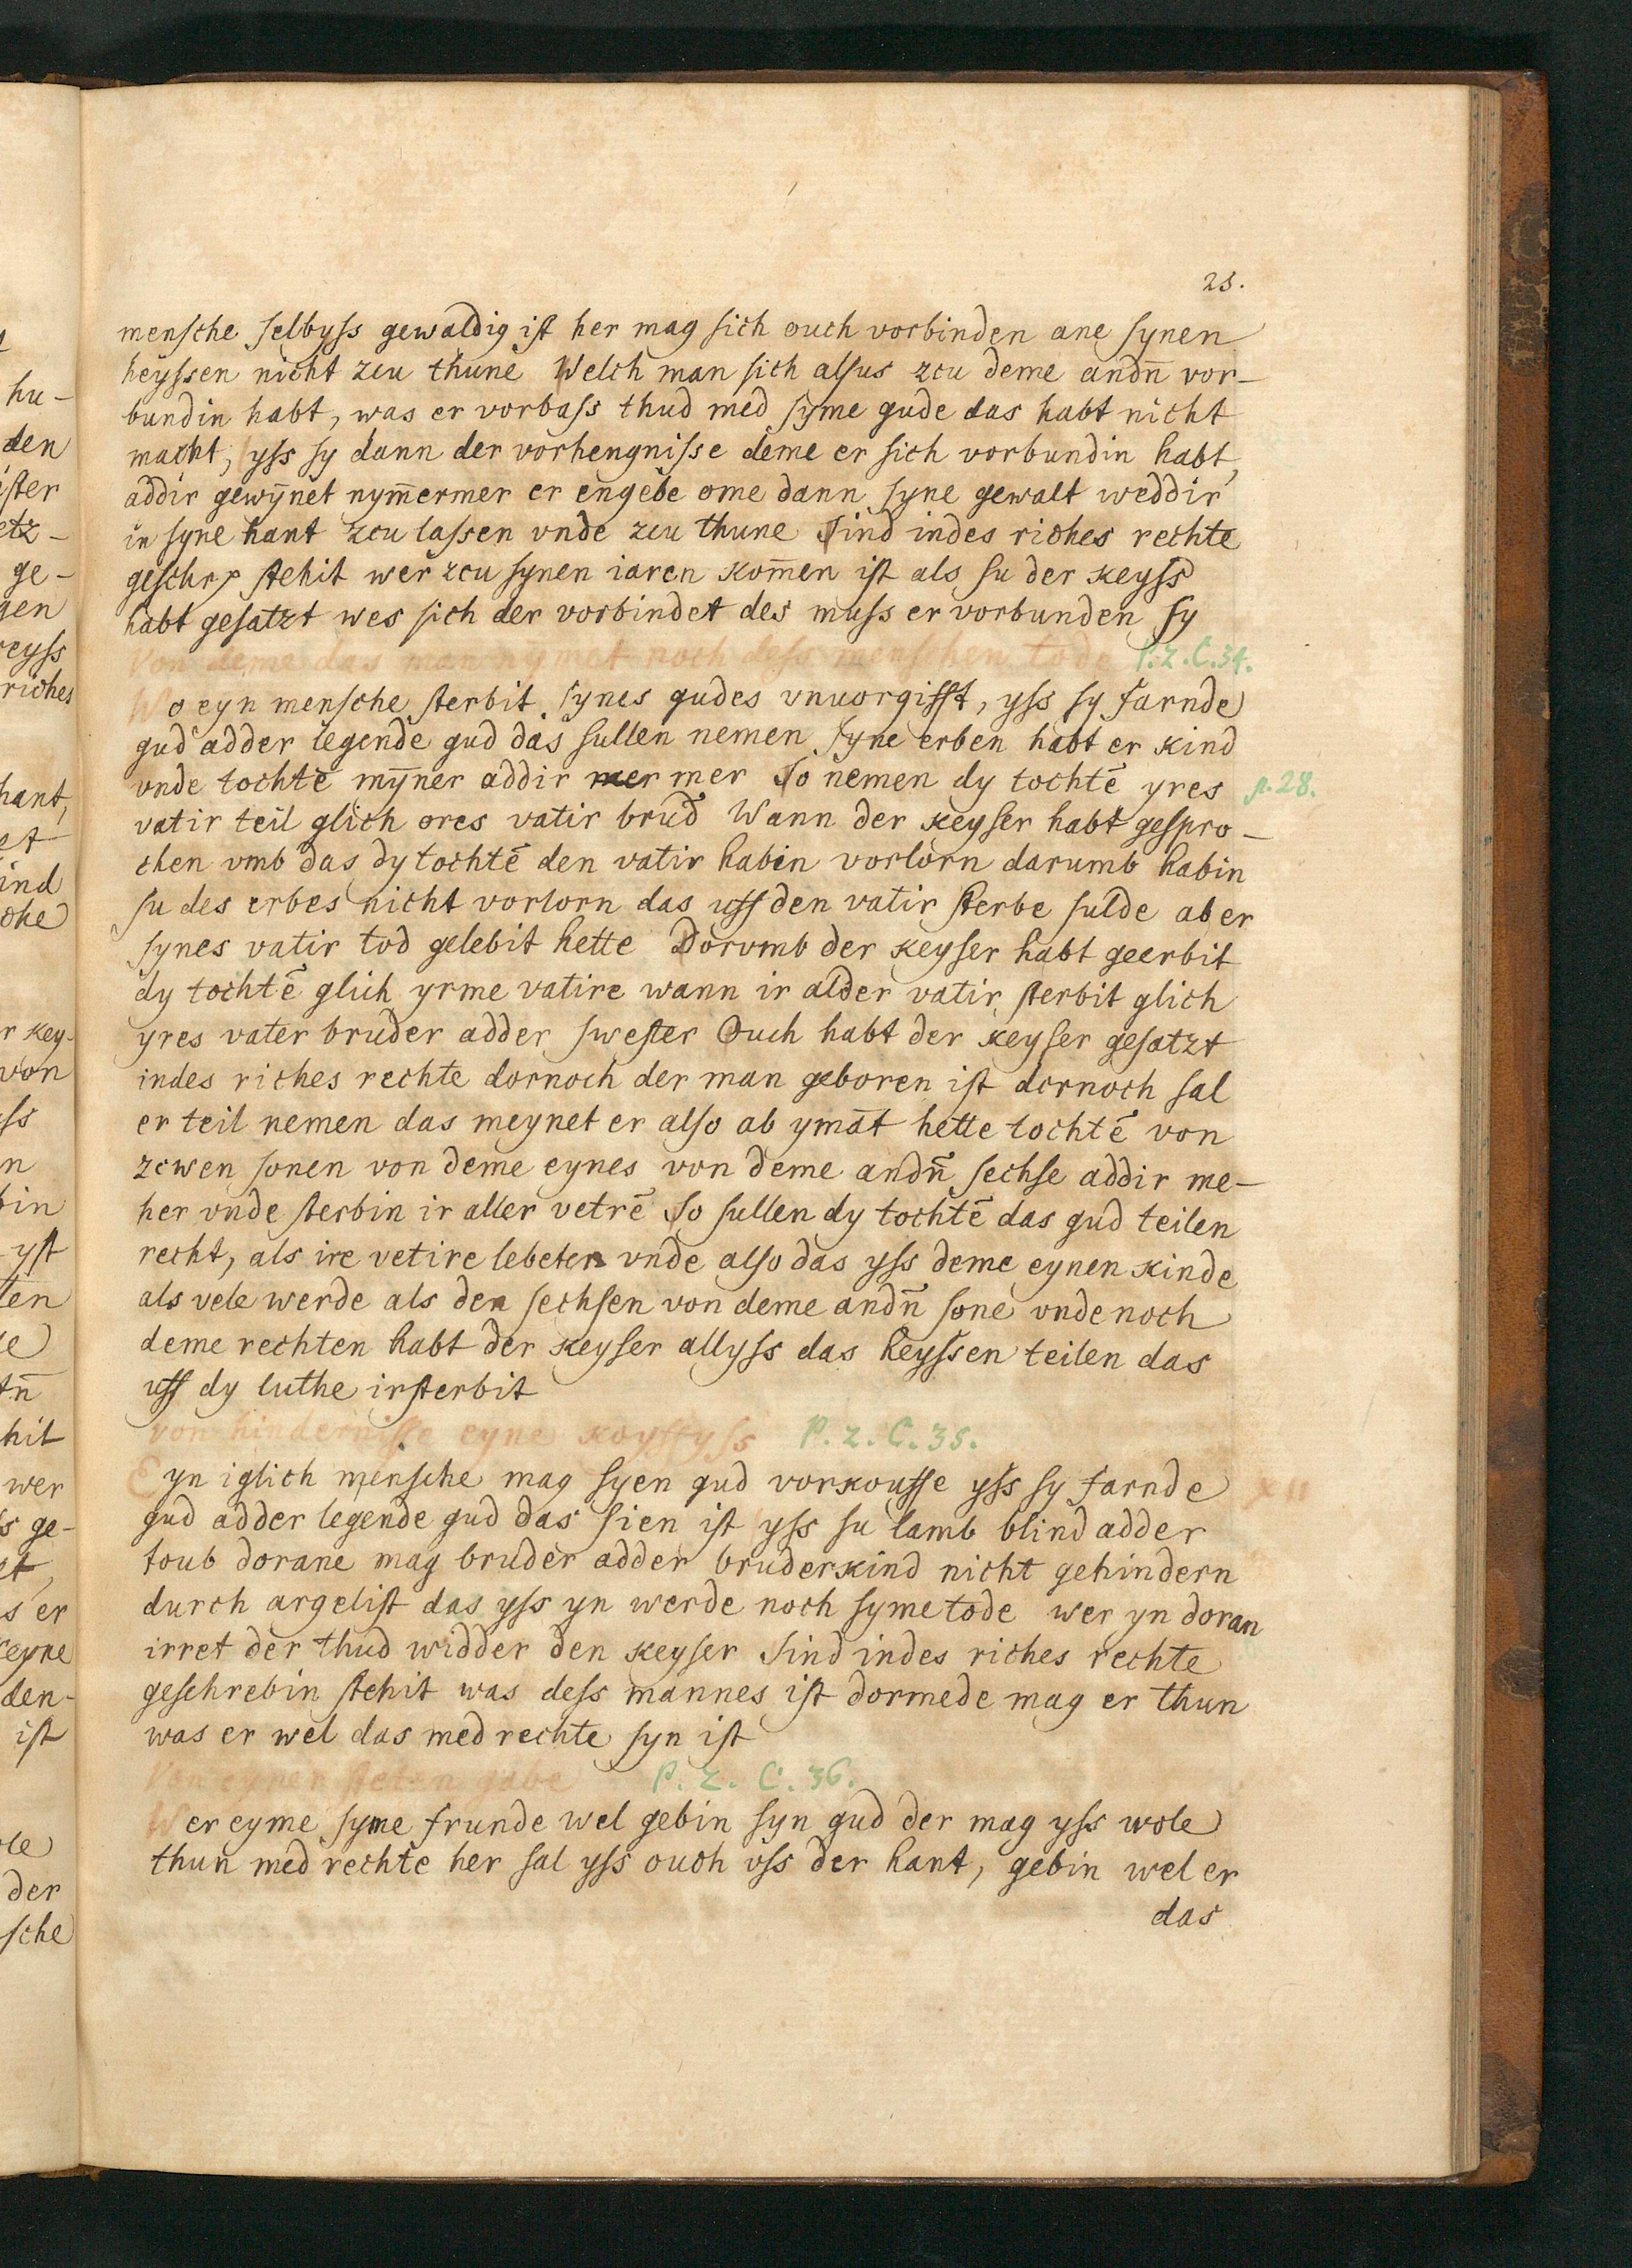 25.
mensche selbyss gewaldig ist her mag sich ouch vorbinden ane synen
heyssen nicht zcu thune Welch man sich alsus zcu deme andn̄ vor-
bundin habt, was er vorbass thud med syme gude das habt nicht
macht, yss sy dann der vorhengnisse deme er sich vorbundin habt,
addir gewȳnet nym̄ermer er engebe ome dann syne gewalt weddir
in syne hant zcu lassen vnde zcu thune Sind indes riches rechte
geschr stehit wer zcu synen iaren kom̄en ist als su der keyss
habt gesatzt wes sich der vorbindet des muss er vorbunden sy
Von deme das man nymet noch dess menschen tode P. 2. C. 34.
Wo eyn mensche sterbit synes gudes vnuorgifft, yss sy farnde
gud adder legende gud das sullen nemen syne erben habt er kind
vnde tochtē mȳner addir mer mer So nemen dy tochtē yres
p. 28.
vatir teil glich ores vatir brud Wann der keyser habt gespro-
chen vmb das dy tochtē den vatir habin vorlorn darumb habin
su des erbes nicht vorlorn das uff den vatir sterbe sulde ab er
synes vatir tod gelebit hette Dorvmb der keyser habt geerbit
dy tochtē glich yrme vatire wann ir alder vatir sterbit glich
yres vater bruder adder swester Ouch habt der keyser gesatzt
indes riches rechte dornoch der man geboren ist dornoch sal
er teil nemen das meynet er also ab ymāt hette tochtē von
zcwen sonen von deme eynes von deme andn̄ sechse addir me-
her vnde sterbin ir aller vetrē So sullen dy tochtē das gud teilen
recht, als ire vetire lebeten vnde also das yss deme eynen kinde
als vele werde als den sechsen von deme andn̄ sone vnde noch
deme rechten habt der keyser allyss das heyssen teilen das
uff dy luthe irsterbit
von hindernisse eyne koyffyss P. 2. C. 35.
Eyn iglich mensche mag syen gud vorkouffe yss sy farnde
XII
gud adder legende gud das sien ist yss su lamb blind adder
toub dorane mag bruder adder bruderkind nicht gehindern
durch argelist das yss yn werde noch syme tode wer yn doran
irret der thud widder den keyser Sind indes riches rechte
geschrebin stehit was dess mannes ist dormede mag er thun
was er wel das med rechte syn ist
Von eynen steten gabe P. 2. C. 36.
Wer eyme syme frunde wel gebin syn gud der mag yss wole
thun med rechte her sal yss ouch vss der hant, gebin wel er
das